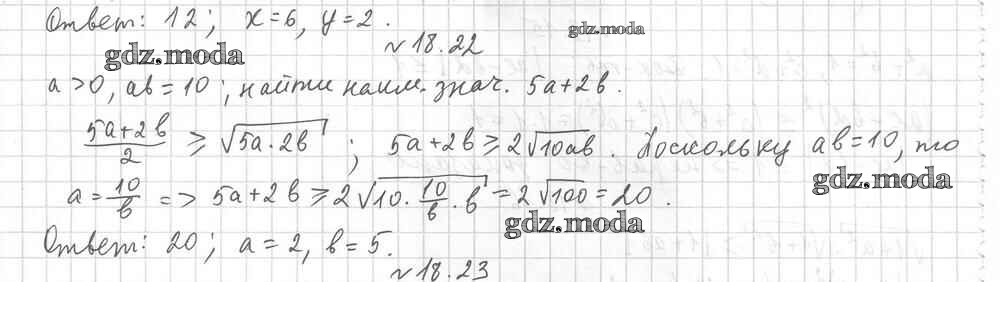 Ответ: 12; x=6, y=2.
gdz.moda
№18.22
gdz.moda
a>0, ab=10; найти наим. знач. 5a+2b.
(5a+2b)/2 ≥ √(5a·2b); 5a+2b ≥ 2√(10ab). Поскольку ab=10, то
gdz.moda
a=10/b => 5a+2b ≥ 2√(10·10/b·b) = 2√100 = 20.
gdz.moda
Ответ: 20; a=2, b=5.
№18.23